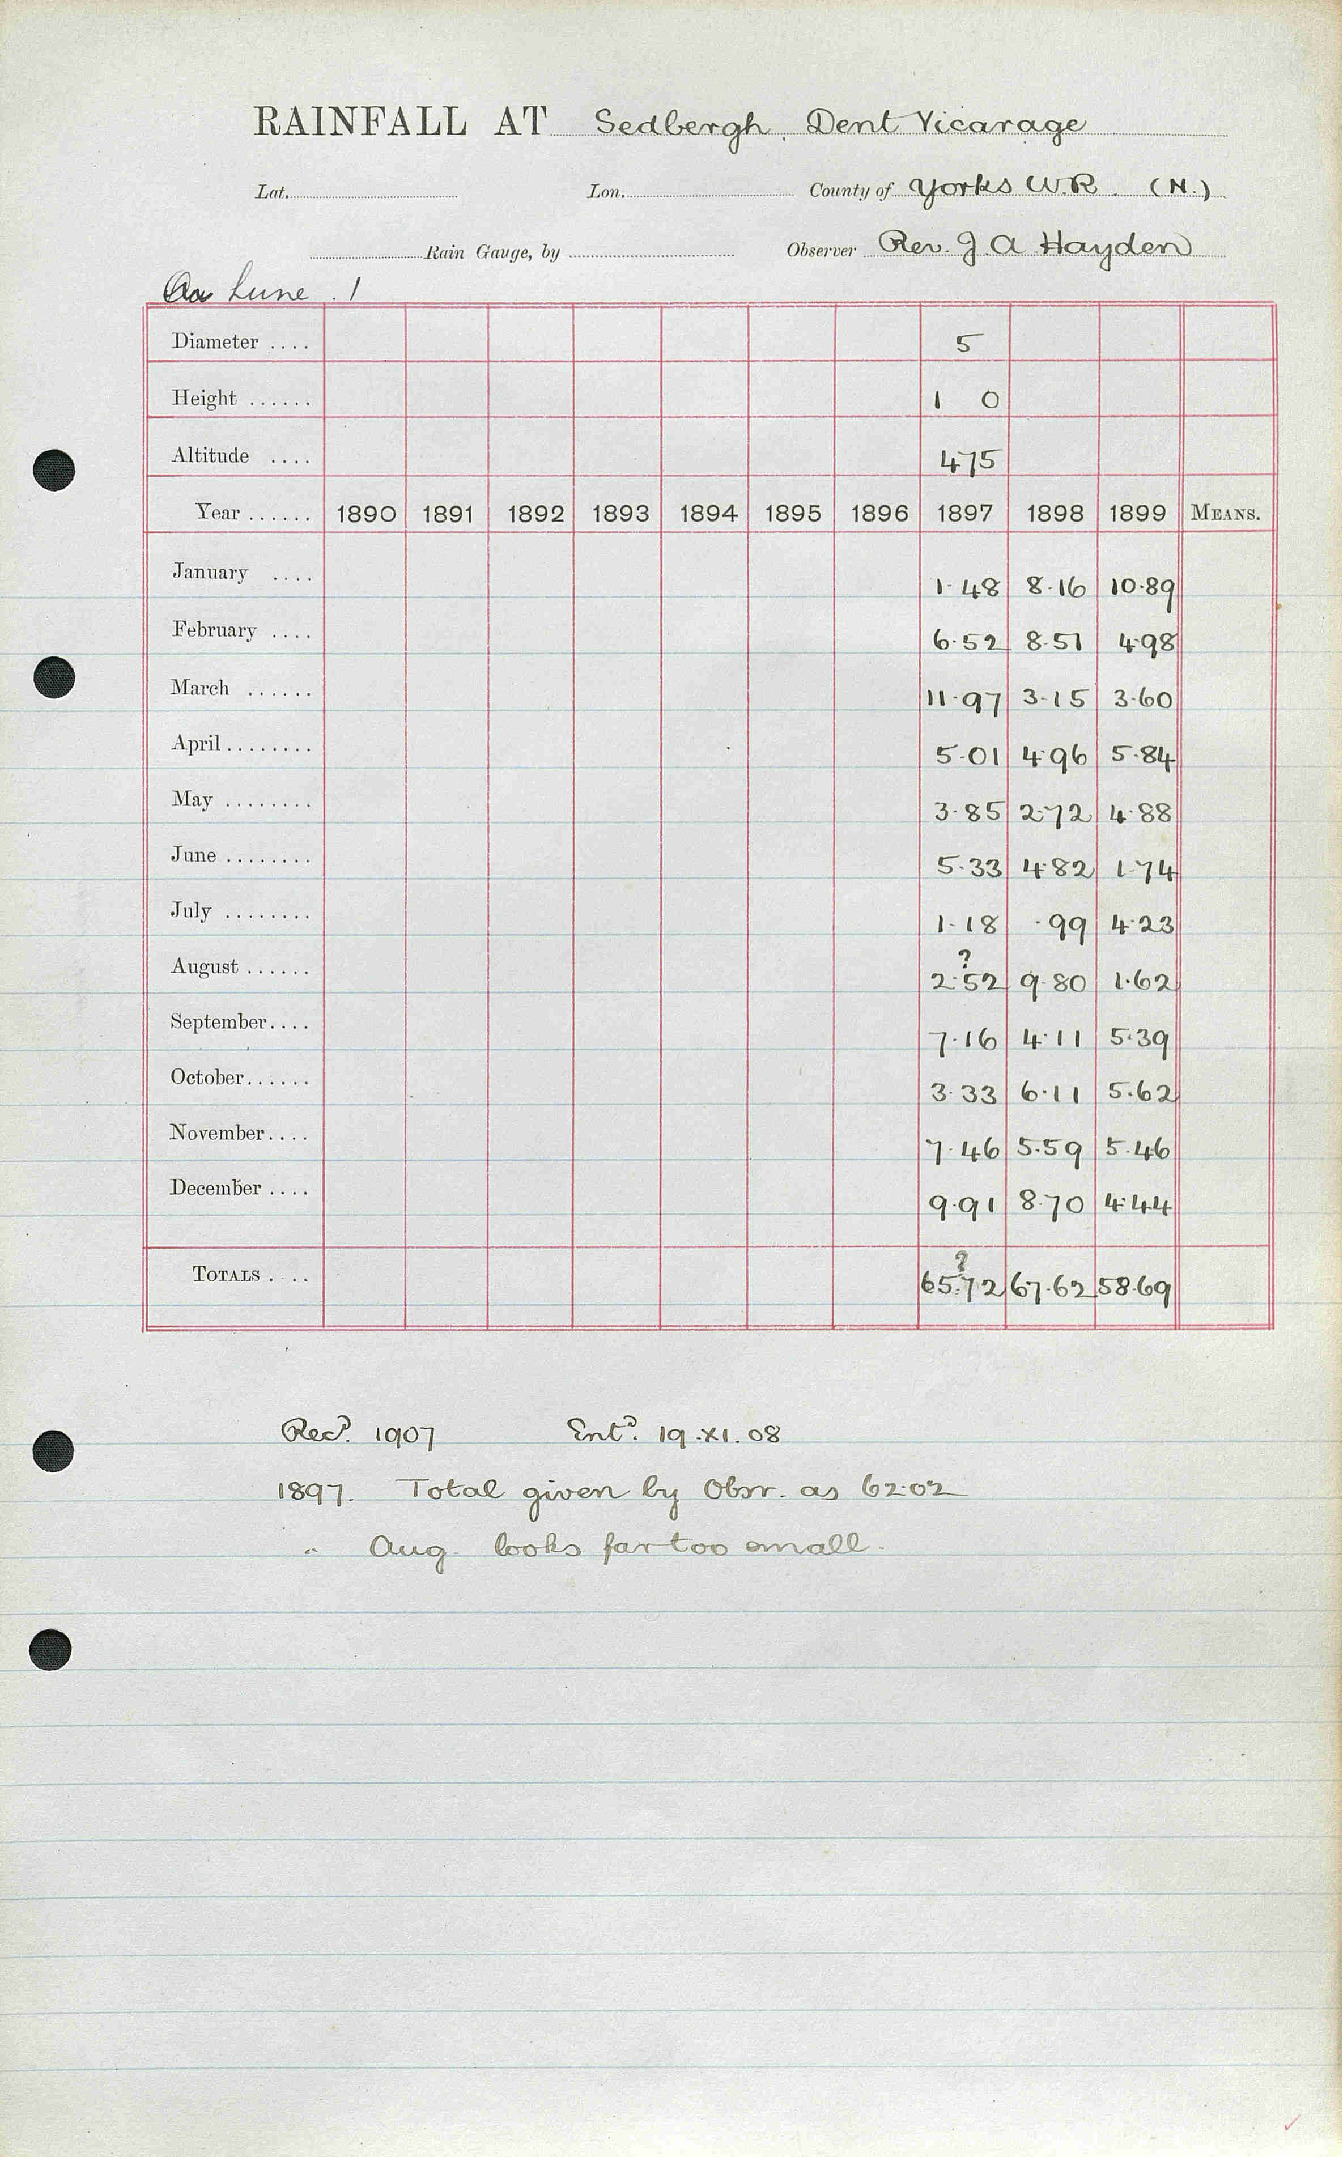 RAINFALL AT Sedbergh, Dent Vicarage
Lat. Lon. County of Yorks W.R. (N.)
Rain Gauge, by Observer Rev. J A Hayden
Lune 1
Diameter .... 5
Height ...... 1 0
Altitude .... 475
Year ...... 1890 1891 1892 1893 1894 1895 1896 1897 1898 1899 MEANS.
January .... 1.48 8.16 10.89
February .... 6.52 8.51 4.98
March ...... 11.97 3.15 3.60
April ........ 5.01 4.96 5.84
May ........ 3.85 2.72 4.88
June ........ 5.33 4.82 1.74
July ........ 1.18 .99 4.23
?
August ...... 2.52 9.80 1.62
September.... 7.16 4.11 5.39
October...... 3.33 6.11 5.62
November.... 7.46 5.59 5.46
December .... 9.91 8.70 4.44
?
TOTALS .... 65.72 67.62 58.69
Recd. 1907 Entd. 19.XI.08
1897. Total given by Obsr. as 62.02
" Aug. looks far too small.